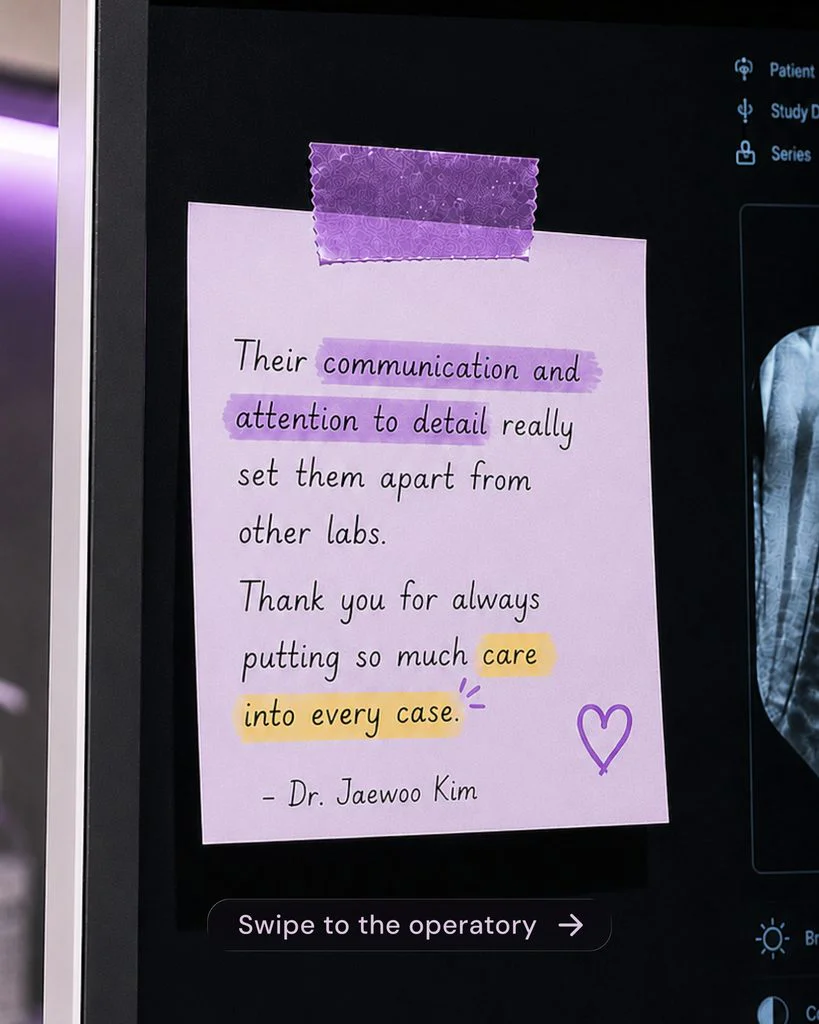 Patient
Study D
Series
Their communication and
attention to detail really
set them apart from
other labs.
Thank you for always
putting so much care
into every case.
– Dr. Jaewoo Kim
Swipe to the operatory →
Br
Co